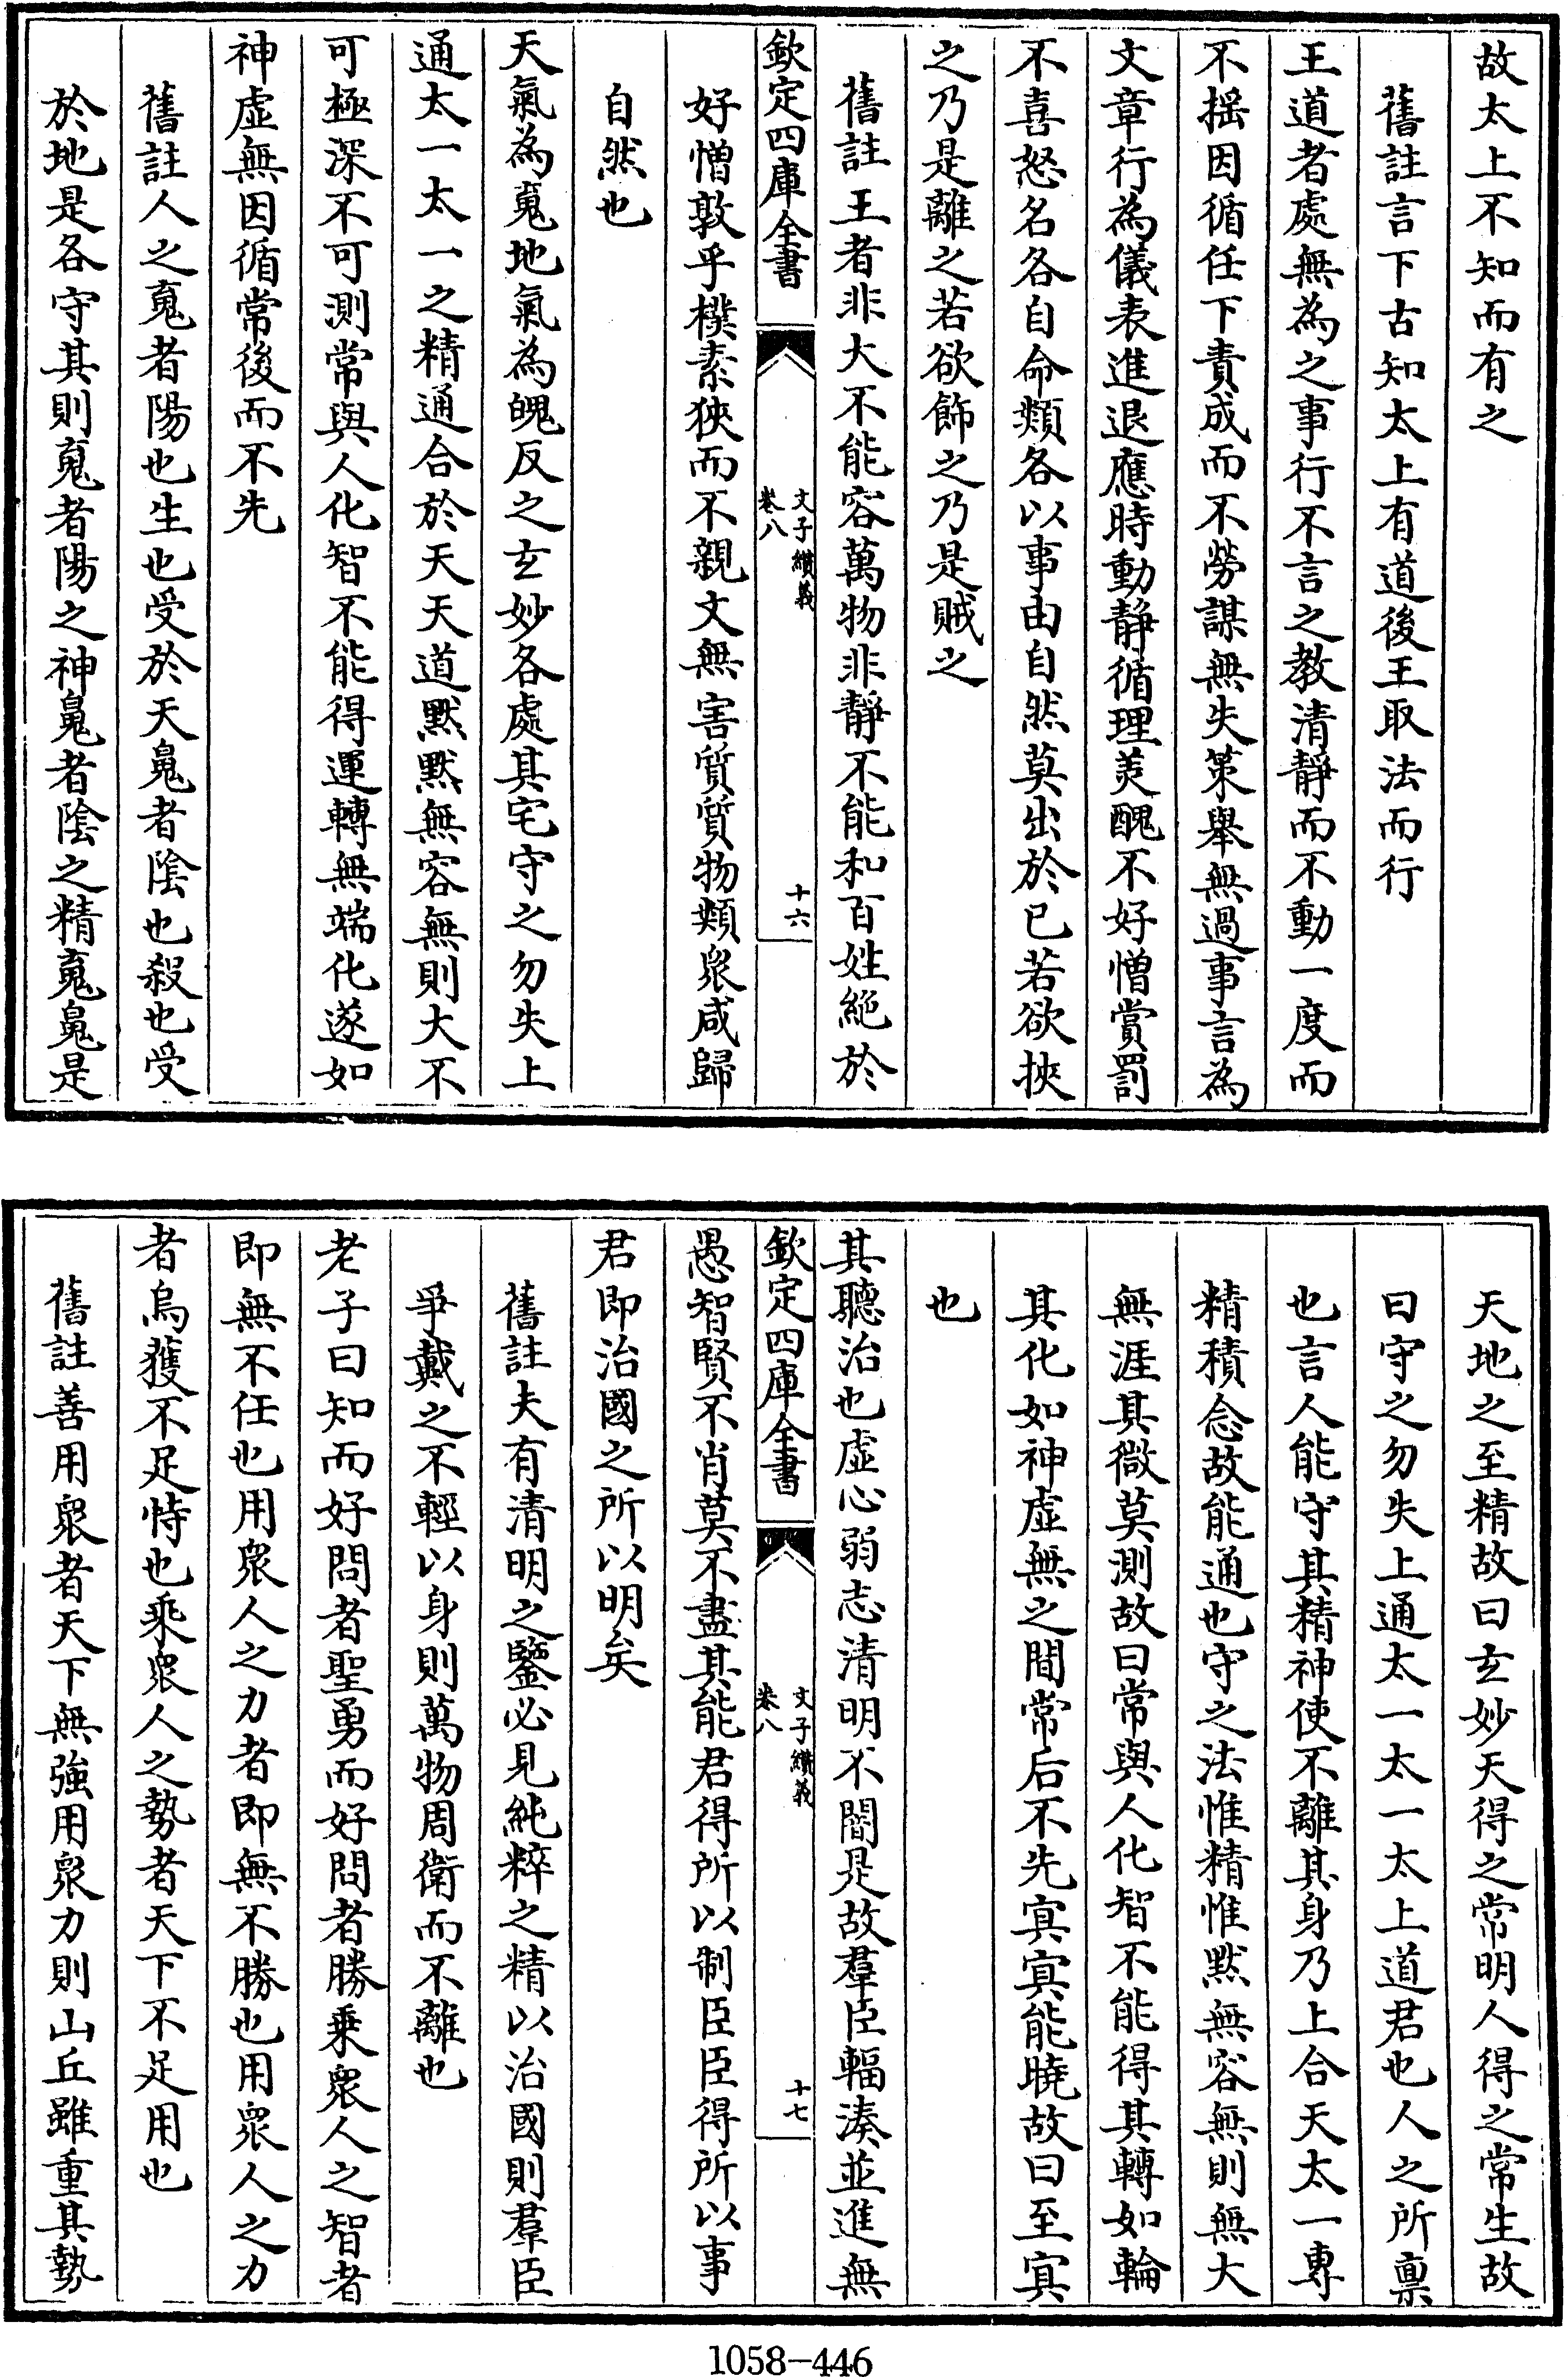 故太上不知而有之
舊註言下古知太上有道後王取法而行
王道者處無為之事行不言之教清靜而不動一度而
不搖因循任下責成而不勞謀無失策舉無過事言為
文章行為儀表進退應時動靜循理羙醜不好憎賞罰
不喜怒名各自命類各以事由自然莫出於已若欲挾
之乃是離之若欲飾之乃是賊之
舊註王者非大不能容萬物非靜不能和百姓絶於
欽定四庫全書
文子纉義
卷八
十六
好憎敦乎樸素狹而不親文無害質質物類衆咸歸
自然也
天氣為䰟地氣為魄反之玄妙各處其宅守之勿失上
通太一太一之精通合於天天道默默無容無則大不
可極深不可測常與人化智不能得運轉無端化遂如
神虛無因循常後而不先
舊註人之䰟者陽也生也受於天鬽者陰也殺也受
於地是各守其則䰟者陽之神鬽者陰之精䰟鬽是
天地之至精故曰玄妙天得之常明人得之常生故
曰守之勿失上通太一太一太上道君也人之所禀
也言人能守其精神使不離其身乃上合天太一專
精積念故能通也守之法惟精惟默無容無則無大
無涯其微莫測故曰常與人化智不能得其轉如輪
其化如神虛無之間常后不先㝠㝠能曉故曰至㝠
也
其聽治也虛心弱志清明不闇是故羣臣輻湊並進無
欽定四庫全書
文子纉義
卷八
十七
愚智賢不肖莫不盡其能君得所以制臣臣得所以事
君即治國之所以明矣
舊註夫有清明之鑒必見純粹之精以治國則羣臣
爭戴之不輕以身則萬物周衛而不離也
老子曰知而好問者聖勇而好問者勝乗衆人之智者
即無不任也用衆人之力者即無不勝也用衆人之力
者烏獲不足恃也乘衆人之勢者天下不足用也
舊註善用衆者天下無強用衆力則山丘雖重其勢
1058-446